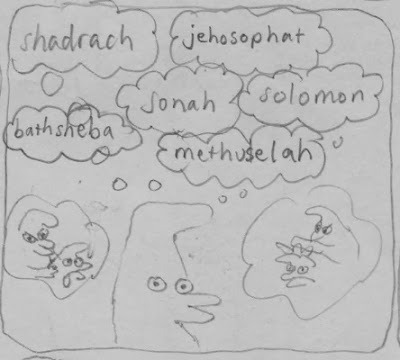 shadrach
jehosophat
jonah
solomon
bathsheba
methuselah